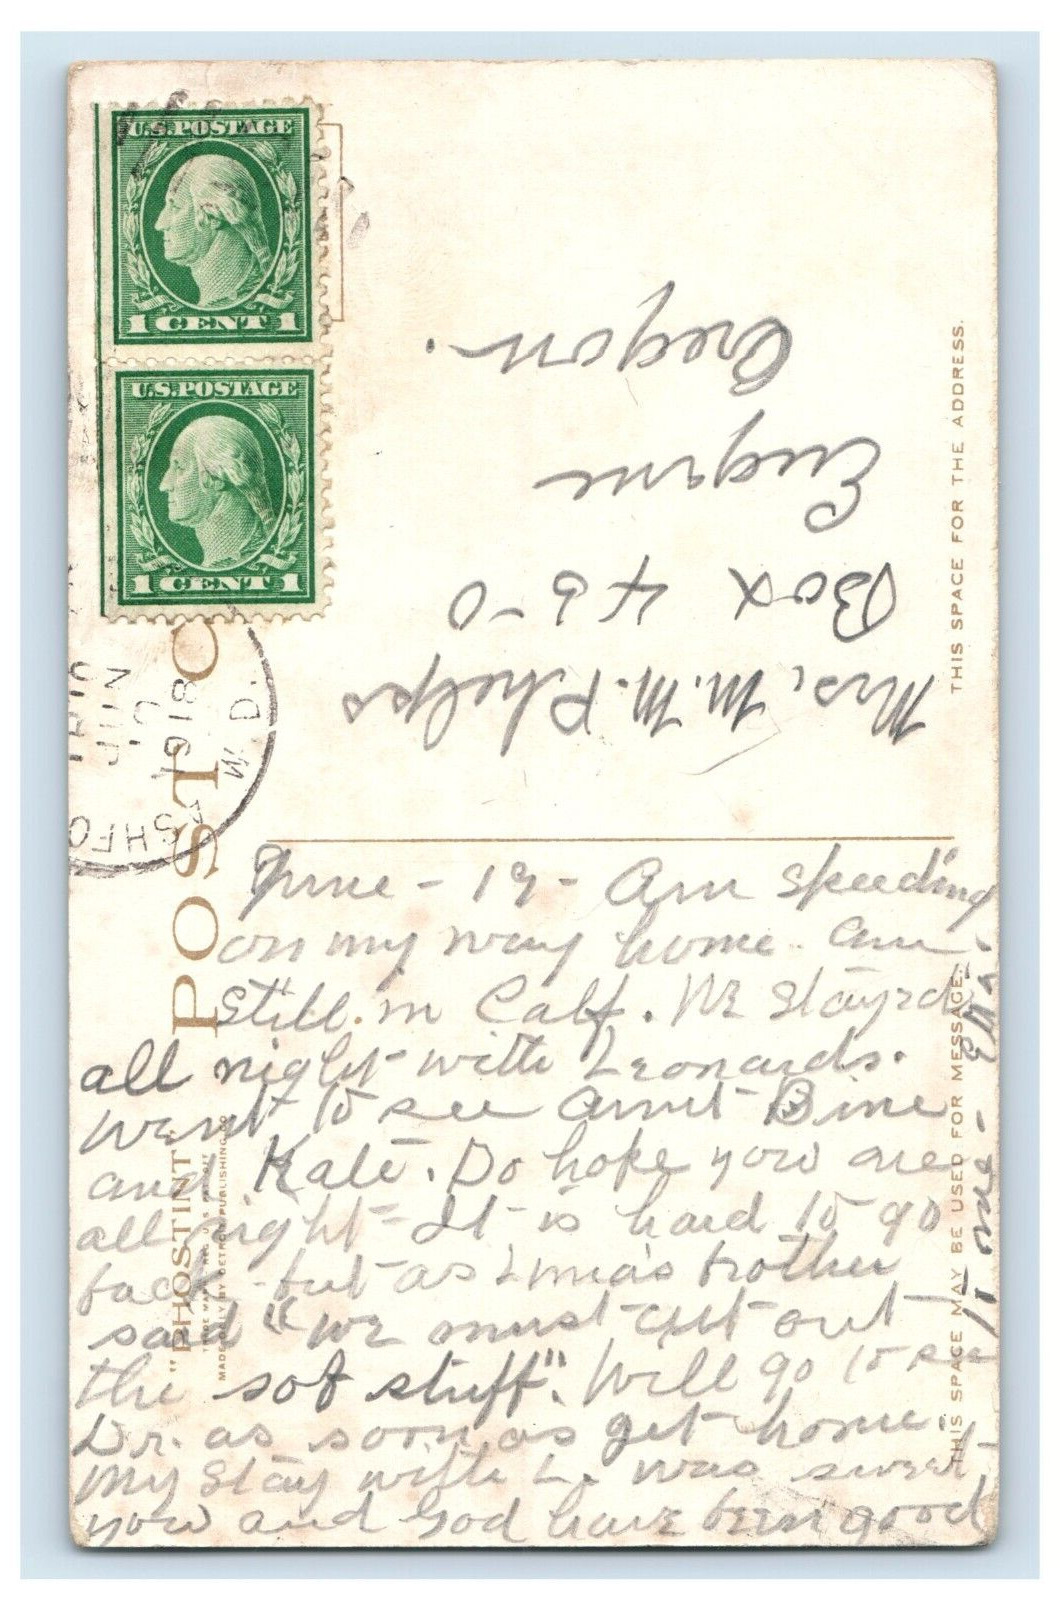 U.S. POSTAGE
1 CENT 1
U.S. POSTAGE
1 CENT 1
POST C
ASHFO
JUN
1918
Mrs. M. M. Phelps
Box 450
Eugene
Oregon.
THIS SPACE FOR THE ADDRESS.
June - 19 - Am speeding
on my way home. am
still in Calf. We stayed
all night with Leonards.
Went to see Aunt Bine
and Kate. Do hope you are
all right - It is hard to go
back - but as Lonia's brother
said "We must cut out
the sob stuff". Will go to see
Dr. as soon as get home.
My stay with L. was sweet
you and God have been good
to me -
THIS SPACE MAY BE USED FOR MESSAGE.
"PHOSTINT"
TRADE MARK REG. U.S. PAT. OFF.
MADE ONLY BY DETROIT PUBLISHING CO.